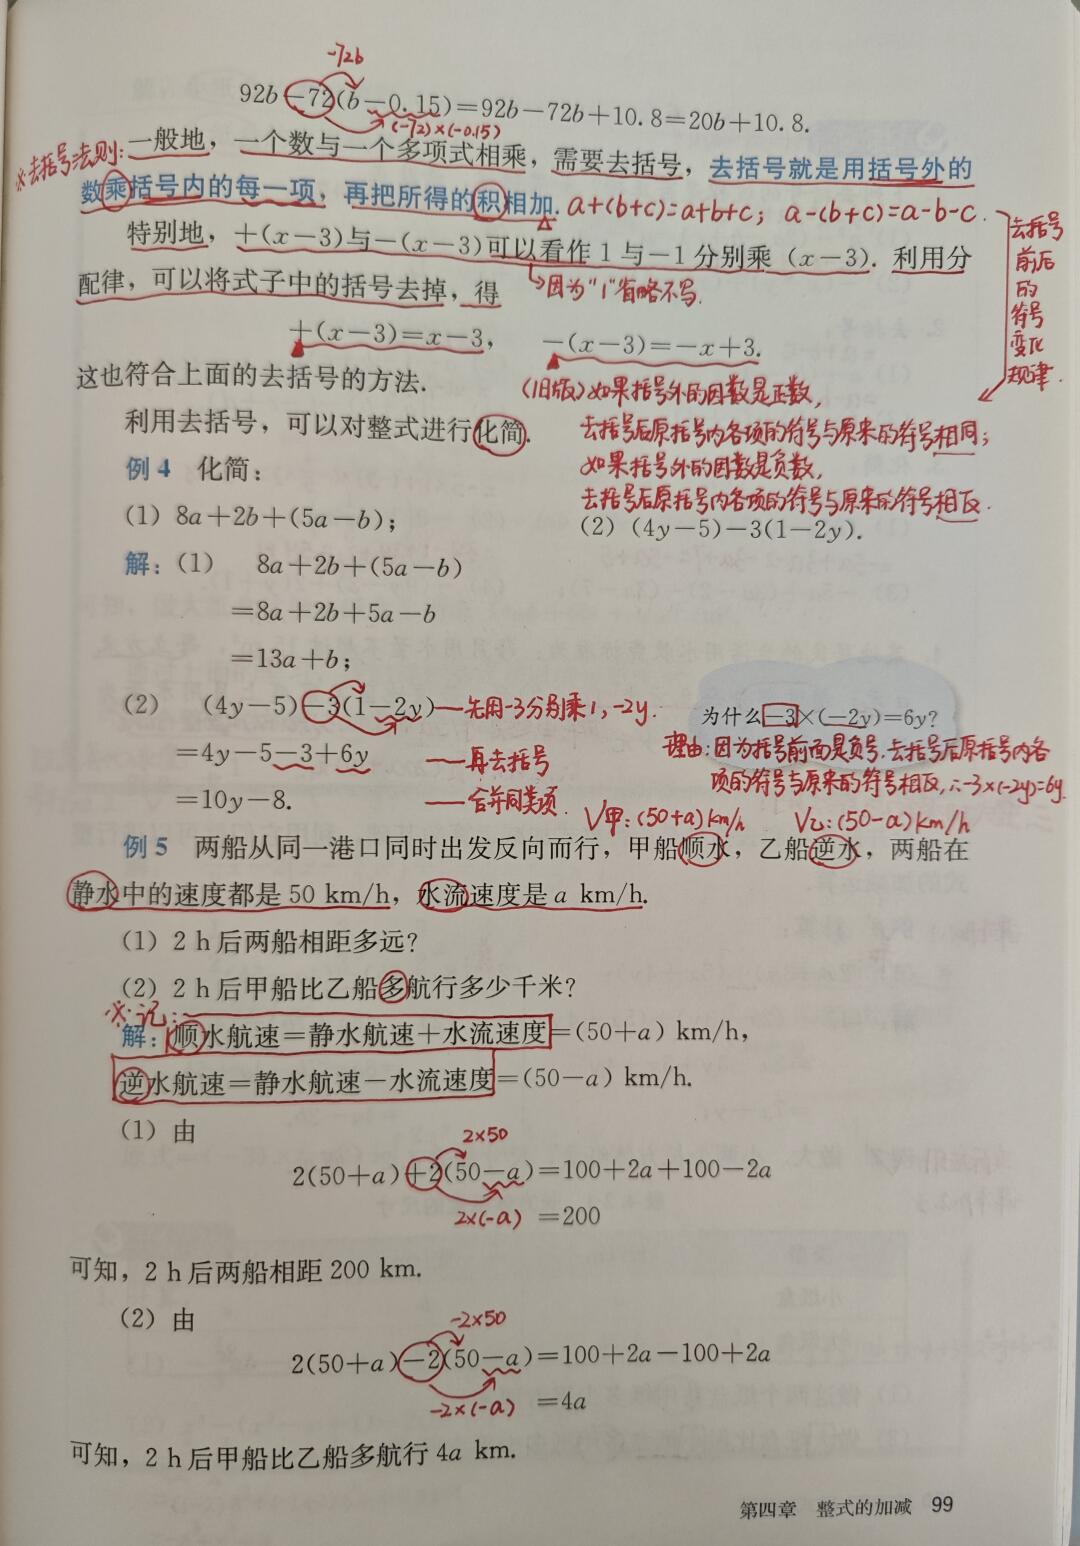 -72b
92b-72(b-0.15)=92b-72b+10.8=20b+10.8.
(-72)×(-0.15)
※去括号法则:
一般地，一个数与一个多项式相乘，需要去括号，去括号就是用括号外的
数乘括号内的每一项，再把所得的积相加.
a+(b+c)=a+b+c; a-(b+c)=a-b-c.
去括号
前后
的
符号
变化
规律.
特别地，+(x-3)与-(x-3)可以看作1与-1分别乘(x-3). 利用分
配律，可以将式子中的括号去掉，得
因为"1"省略不写.
+(x-3)=x-3, -(x-3)=-x+3.
这也符合上面的去括号的方法.
(旧版)如果括号外的因数是正数,
去括号后原括号内各项的符号与原来的符号相同;
如果括号外的因数是负数,
去括号后原括号内各项的符号与原来的符号相反.
利用去括号，可以对整式进行化简.
例4 化简：
(1) 8a+2b+(5a-b); (2) (4y-5)-3(1-2y).
解：(1) 8a+2b+(5a-b)
=8a+2b+5a-b
=13a+b;
(2) (4y-5)-3(1-2y)
先用-3分别乘1,-2y.
=4y-5-3+6y
再去括号
=10y-8.
合并同类项.
为什么-3×(-2y)=6y?
理由:因为括号前面是负号,去括号后原括号内各
项的符号与原来的符号相反,∴-3×(-2y)=6y.
V甲:(50+a)km/h V乙:(50-a)km/h
例5 两船从同一港口同时出发反向而行，甲船顺水，乙船逆水，两船在
静水中的速度都是50 km/h，水流速度是a km/h.
(1) 2 h后两船相距多远？
(2) 2 h后甲船比乙船多航行多少千米？
※记:
解：顺水航速=静水航速+水流速度=(50+a) km/h，
逆水航速=静水航速-水流速度=(50-a) km/h.
(1) 由
2×50
2(50+a)+2(50-a)=100+2a+100-2a
2×(-a)
=200
可知，2 h后两船相距200 km.
(2) 由
-2×50
2(50+a)-2(50-a)=100+2a-100+2a
-2×(-a)
=4a
可知，2 h后甲船比乙船多航行4a km.
第四章 整式的加减 99